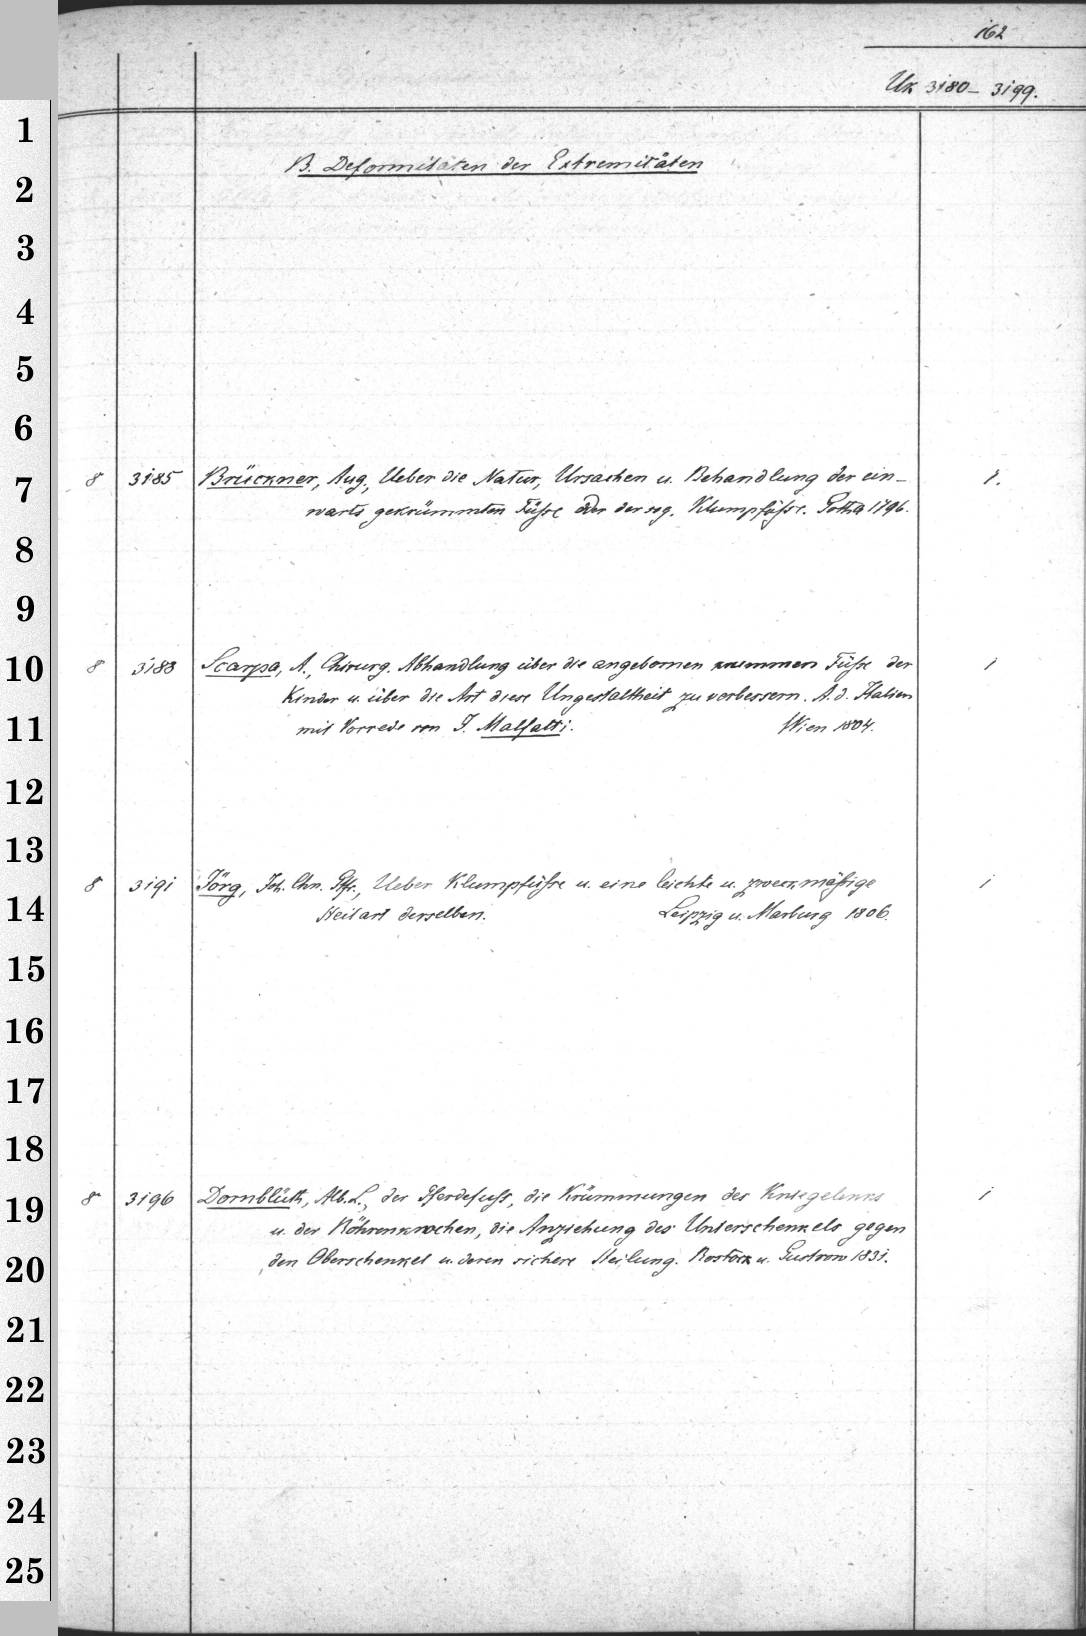 162
Ux 3180 - 3199.
1
B. Deformitäten der Extremitäten
2
3
4
5
6
7
8 3185 Brückner, Aug., Ueber die Natur, Ursachen u. Behandlung der ein- 1.
warts gekrümmten Füsse oder der sog. Klumpfüsse. Gotha 1796.
8
9
10
8 3188 Scarpa, A., Chirurg. Abhandlung über die angebornen krummen Füsse der 1
Kinder u. über die Art diese Ungestaltheit zu verbessern. A. d. Italien
mit Vorrede von J. Malfatti. Wien 1804.
11
12
13
8 3191 Jörg, Joh. Chn. Gfr., Ueber Klumpfüsse u. eine leichte u. zweckmäßige 1
14
Heilart derselben. Leipzig u. Marburg 1806.
15
16
17
18
8 3196 Dornblüth, Alb. L., der Pferdefuss, die Krümmungen des Kniegelenks 1
19
u. der Röhrenknochen, die Anziehung des Unterschenkels gegen
den Oberschenkel u. deren sichere Heilung. Rostock u. Gustrow 1831.
20
21
22
23
24
25